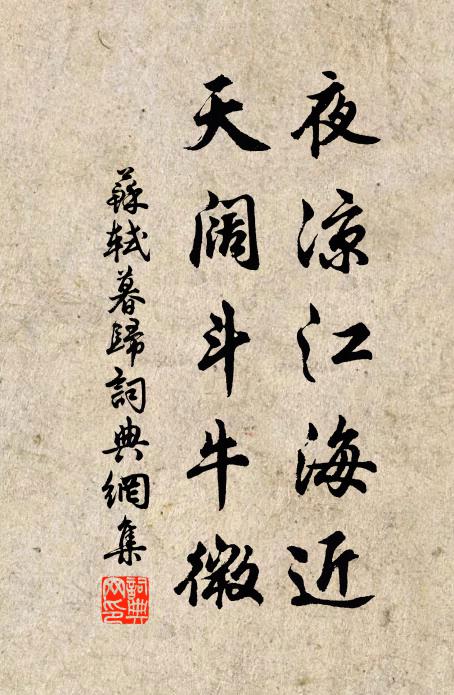 夜涼江海近
天闊斗牛微
蘇軾暮歸詞典網集
詞典網印